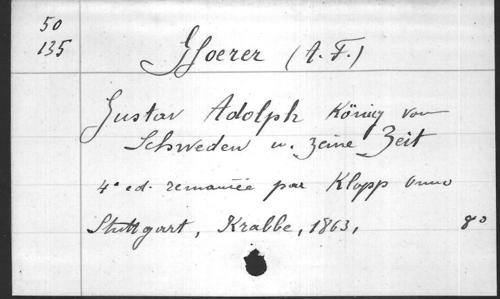 50
135
Gfoerer (A. F.)
Gustav Adolph König von
Schweden u. zeine Zeit
4e ed. remaniée par Klopp Onno
Stuttgart, Krabbe, 1863, 8o